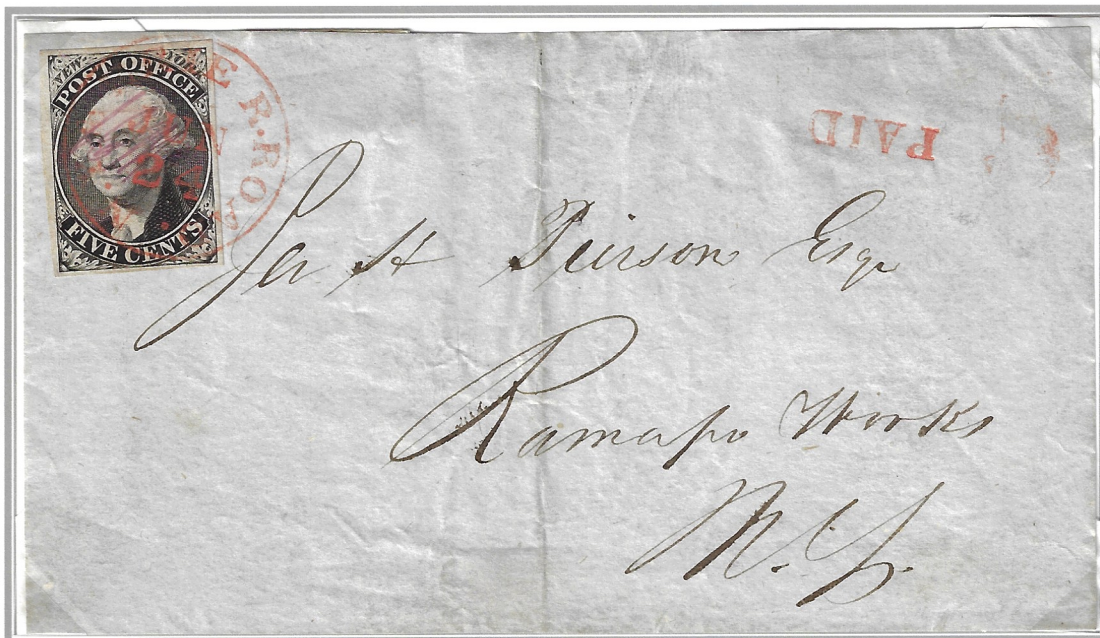 NEW YORK
POST OFFICE
FIVE CENTS
E R. ROA
PAID
Jer H Pierson Esqr
Ramapo Works
N.Y.